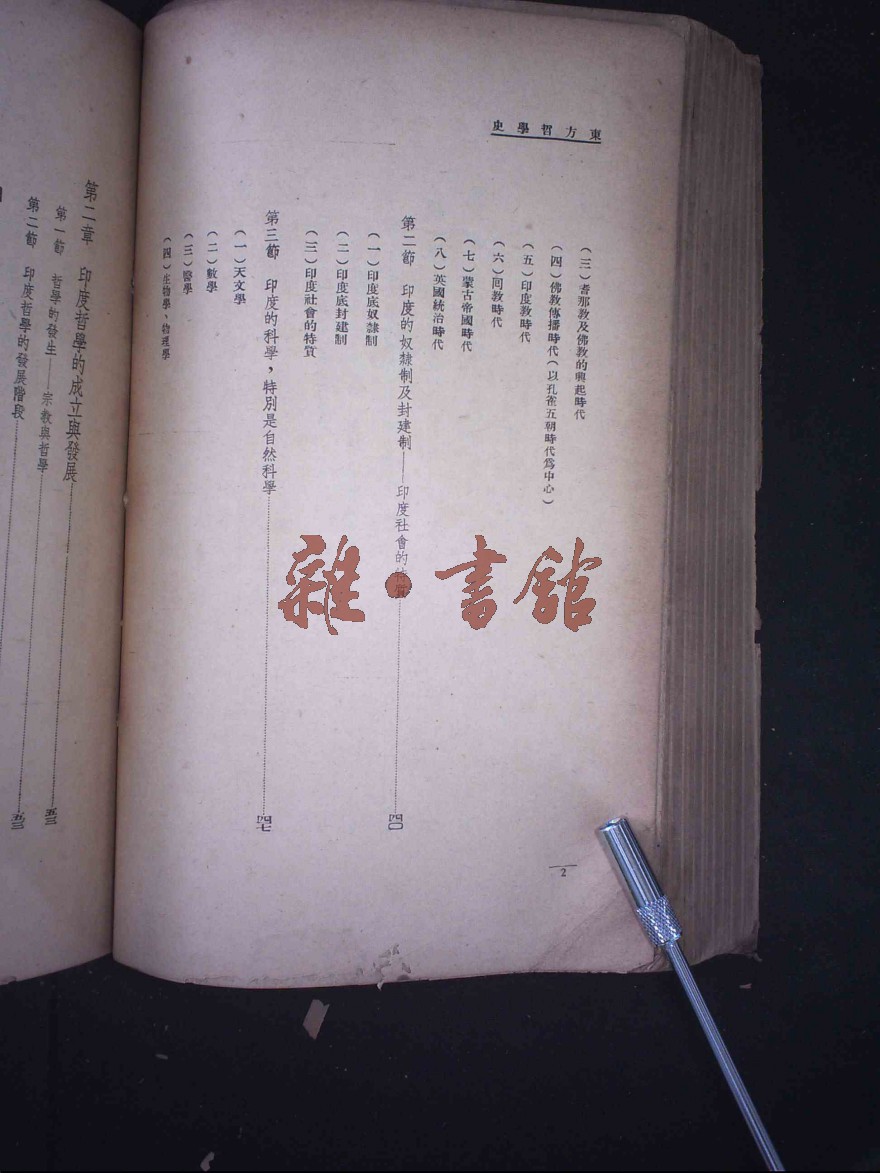 東方哲學史
（三）耆那教及佛教的興起時代
（四）佛教傳播時代（以孔雀五朝時代爲中心）
（五）印度教時代
（六）回教時代
（七）蒙古帝國時代
（八）英國統治時代
第二節　印度的奴隸制及封建制——印度社會的特質……四〇
（一）印度底奴隸制
（二）印度底封建制
（三）印度社會的特質
第三節　印度的科學，特別是自然科學……四七
（一）天文學
（二）數學
（三）醫學
（四）生物學、物理學
2
第二章　印度哲學的成立與發展……
第一節　哲學的發生——宗教與哲學……五三
第二節　印度哲學的發展階段……五三
雜・書館